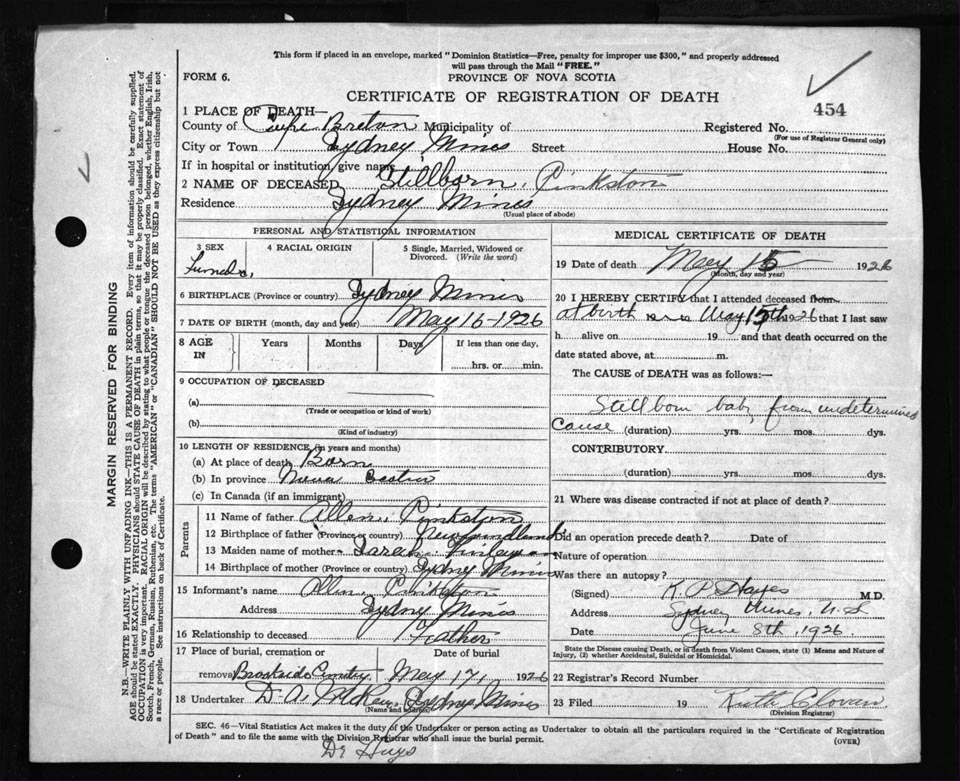 This form if placed in an envelope, marked "Dominion Statistics—Free, penalty for improper use $300," and properly addressed
will pass through the Mail "FREE."
FORM 6.
PROVINCE OF NOVA SCOTIA
CERTIFICATE OF REGISTRATION OF DEATH
454
1 PLACE OF DEATH—
County of Cape Breton Municipality of Registered No.
(For use of Registrar General only)
City or Town Sydney Mines Street House No.
If in hospital or institution, give name
2 NAME OF DECEASED Stillborn, Pinkston
Residence Sydney Mines
(Usual place of abode)
PERSONAL AND STATISTICAL INFORMATION
3 SEX
4 RACIAL ORIGIN
5 Single, Married, Widowed or Divorced. (Write the word)
6 BIRTHPLACE (Province or country) Sydney Mines
7 DATE OF BIRTH (month, day and year) May 16-1926
8 AGE IN
Years Months Days If less than one day,
hrs. or min.
9 OCCUPATION OF DECEASED
(a)
(Trade or occupation or kind of work)
(b)
(Kind of industry)
10 LENGTH OF RESIDENCE (in years and months)
(a) At place of death Born
(b) In province Nova Scotia
(c) In Canada (if an immigrant)
Parents
11 Name of father Allen Pinkston
12 Birthplace of father (Province or country) Newfoundland
13 Maiden name of mother Sarah
14 Birthplace of mother (Province or country) Sydney Mines
15 Informant's name Allen Pinkston
Address Sydney Mines
16 Relationship to deceased Father
17 Place of burial, cremation or removal Brookside Cemetery
Date of burial May 17, 1926
18 Undertaker D. A. Sydney Mines
(Name and address)
MEDICAL CERTIFICATE OF DEATH
19 Date of death May 15 1926
(Month, day and year)
20 I HEREBY CERTIFY that I attended deceased from
at birth May 15th 1926 that I last saw
h alive on 19 and that death occurred on the
date stated above, at m.
The CAUSE of DEATH was as follows:—
Stillborn baby from undetermined
cause (duration) yrs. mos. dys.
CONTRIBUTORY
(duration) yrs. mos. dys.
21 Where was disease contracted if not at place of death?
Did an operation precede death? Date of
Nature of operation
Was there an autopsy?
(Signed) K. P. Hayes M.D.
Address Sydney Mines, N.S
Date June 8th, 1926.
State the Disease causing Death, or in death from Violent Causes, state (1) Means and Nature of
Injury, (2) whether Accidental, Suicidal or Homicidal.
22 Registrar's Record Number
23 Filed 19 Ruth
(Division Registrar)
SEC. 46—Vital Statistics Act makes it the duty of the Undertaker or person acting as Undertaker to obtain all the particulars required in the "Certificate of Registration
of Death" and to file the same with the Division Registrar who shall issue the burial permit.
(OVER)
MARGIN RESERVED FOR BINDING
N.B.—WRITE PLAINLY WITH UNFADING INK—THIS IS A PERMANENT RECORD. Every item of information should be carefully supplied.
AGE should be stated EXACTLY. PHYSICIANS should STATE CAUSE OF DEATH in plain terms, so that it may be properly classified. Exact statement of
OCCUPATION is very important. RACIAL ORIGIN will be described by stating to what people or tongue the deceased person belonged, whether English, Irish,
Scotch, French, German, Russian, Ruthenian, etc. The terms "AMERICAN" or "CANADIAN" SHOULD NOT BE USED as they express citizenship but not
a race or people. See instructions on back of Certificate.